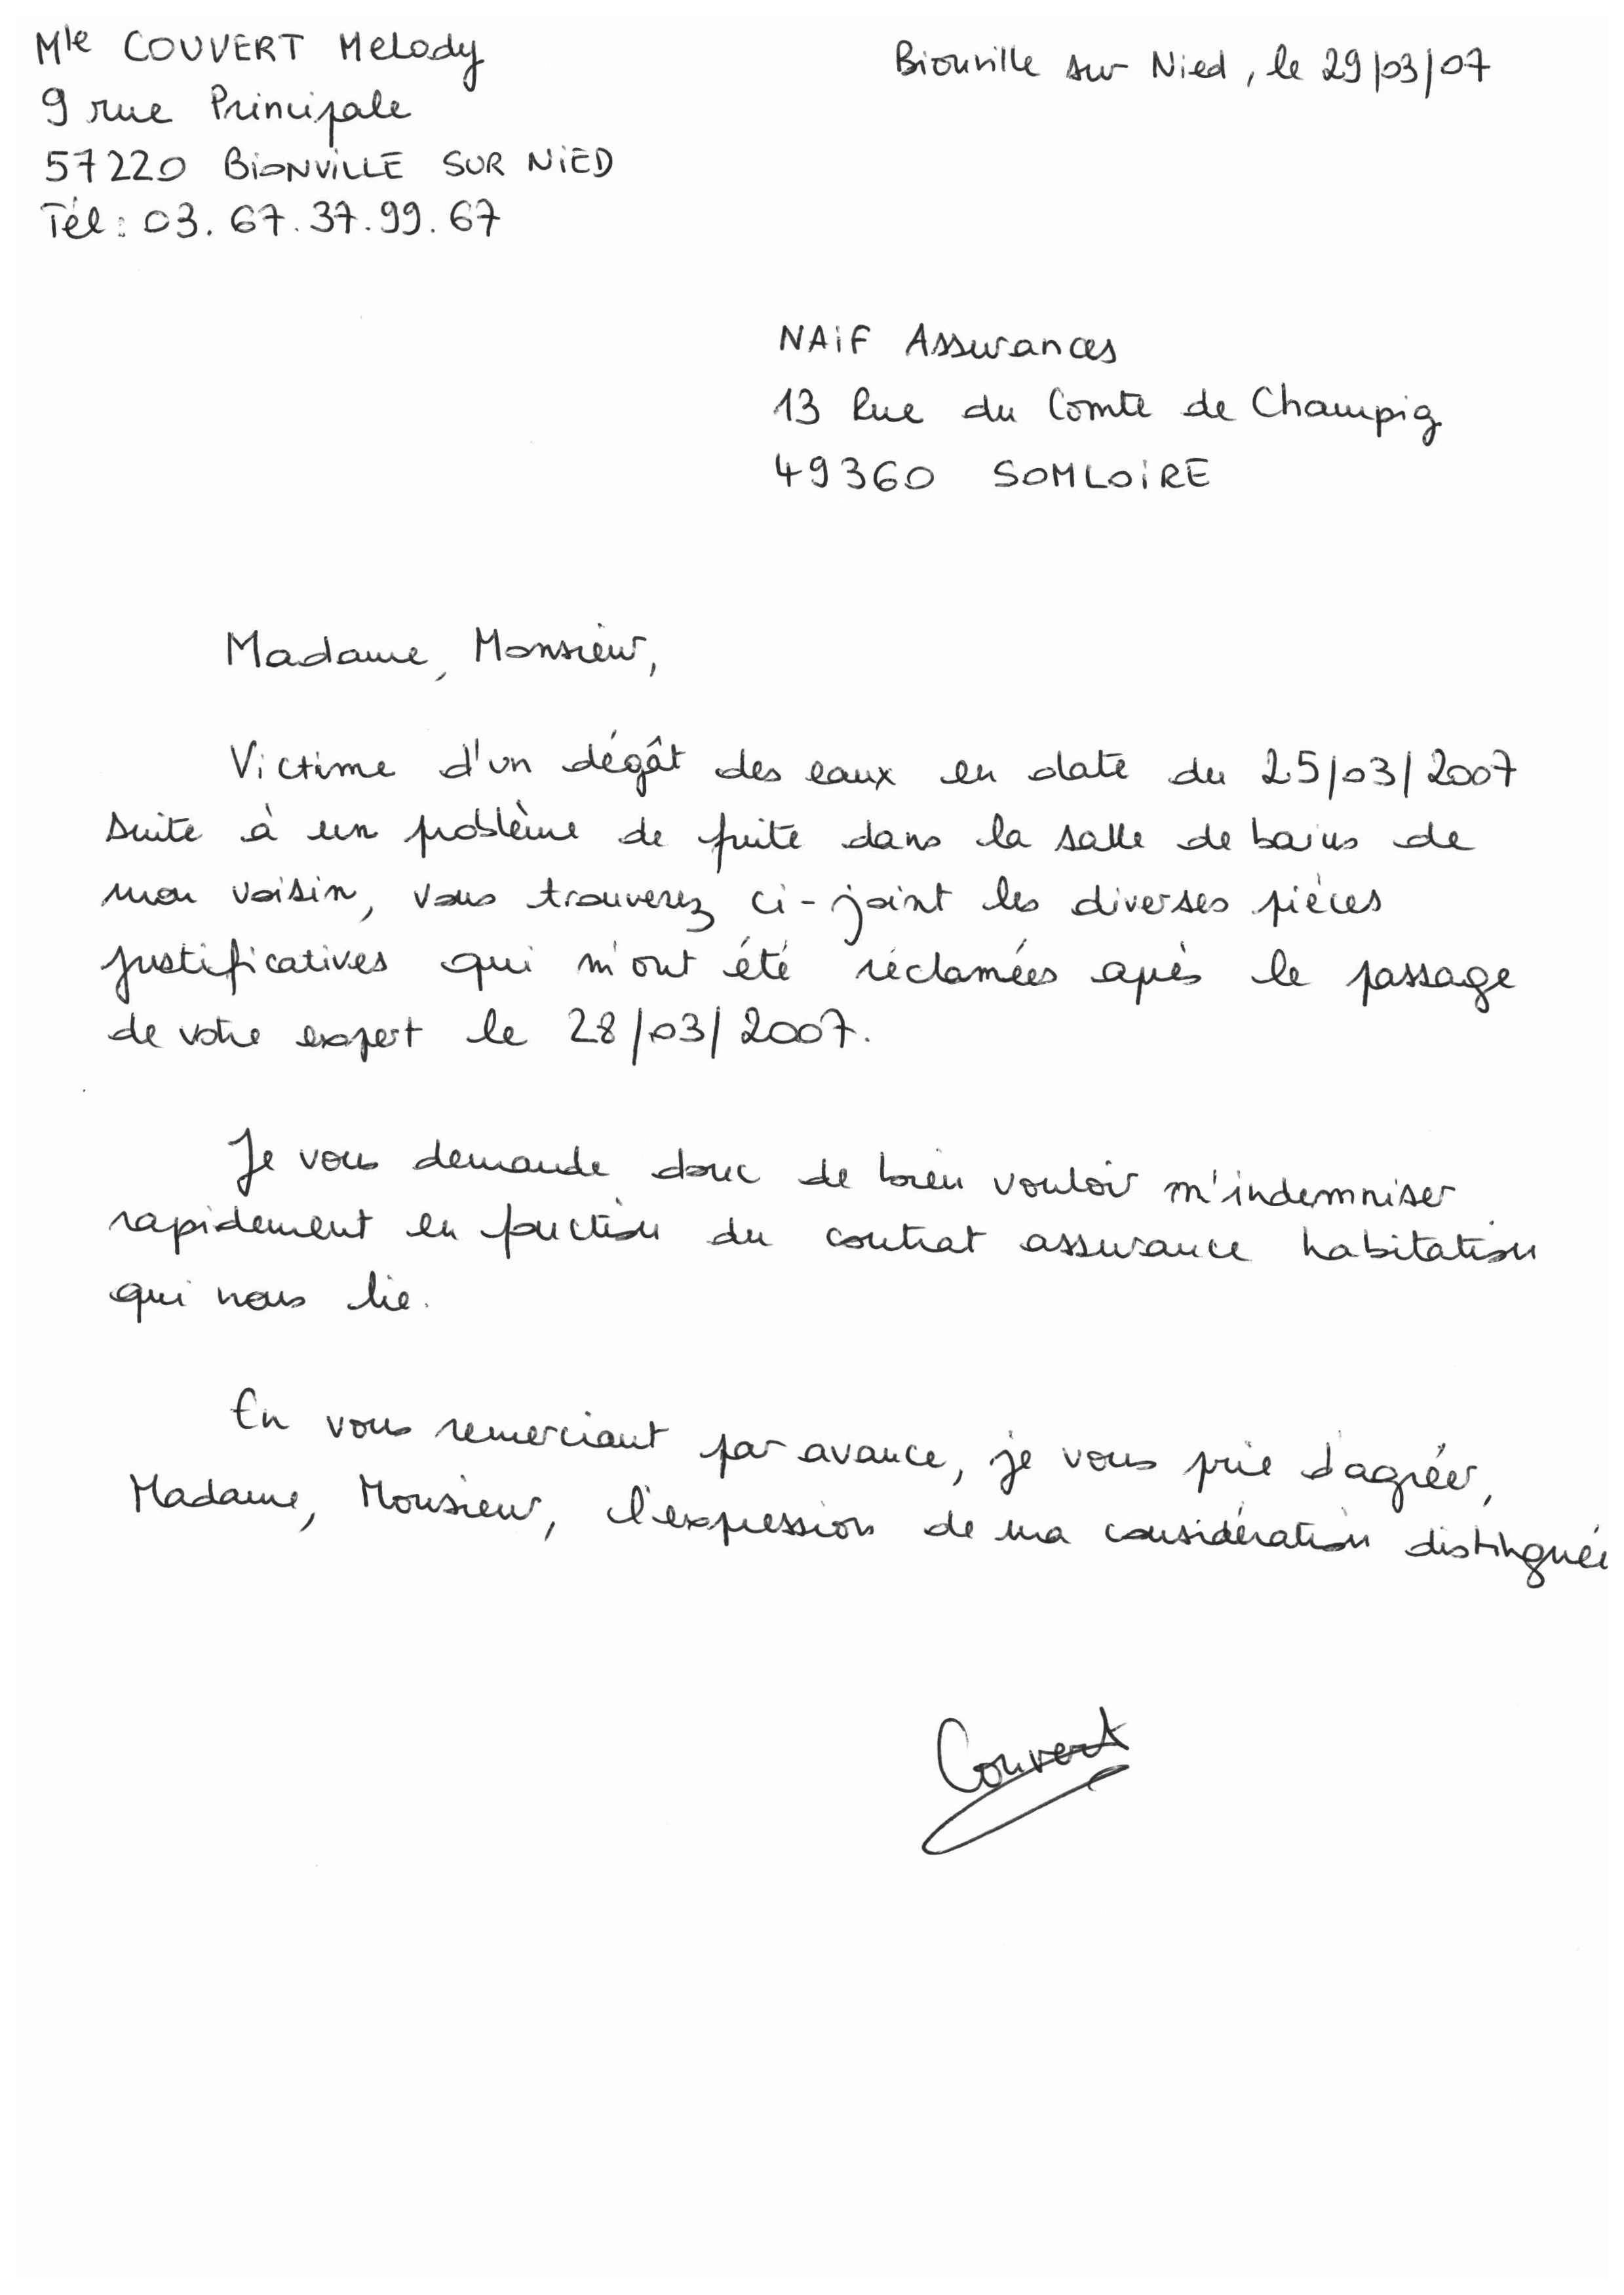 Mle COUVERT Melody
Bionville sur Nied, le 29/03/07
9 rue Principale
57220 BIONVILLE SUR NIED
Tél: 03.67.37.99.67
NAIF Assurances
13 Rue du Comte de Champig
49360 SOMLOIRE
Madame, Monsieur,
Victime d'un dégât des eaux en date du 25/03/2007
suite à un problème de fuite dans la salle de bains de
mon voisin, vous trouverez ci-joint les diverses pièces
justificatives qui m'ont été réclamées après le passage
de votre expert le 28/03/2007.
Je vous demande donc de bien vouloir m'indemniser
rapidement en fonction du contrat assurance habitation
qui nous lie.
En vous remerciant par avance, je vous prie d'agréer,
Madame, Monsieur, l'expression de ma considération distinguée
Couvert